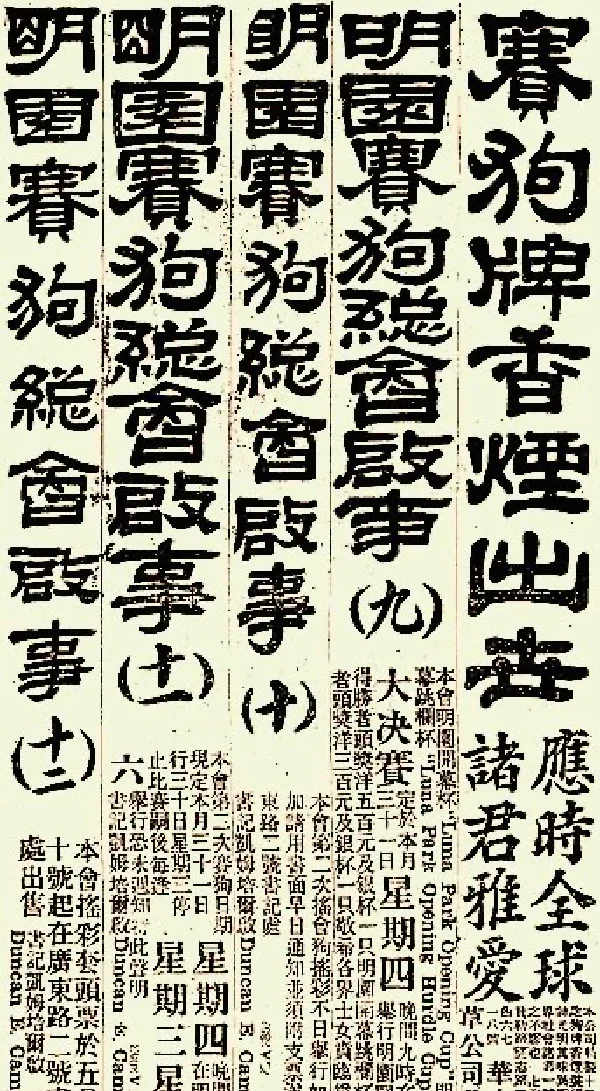 賽狗牌香煙出世
應時全球
諸君雅愛
草公司
明園賽狗總會啟事(九)
本會明園開幕杯 "Luna Park Opening Cup" 明
幕跳欄杯 "Luna Park Opening Hurdle Cup
大決賽 定於本月三十一日 星期四 晚間九時舉行明園開
得勝者頭獎洋五百元及銀杯一只明園開幕跳欄杯
者頭獎洋三百元及銀杯一只敬希各界士女賁臨
明園賽狗總會啟事(十)
本會第二次搖會狗搖彩不日舉行如
加請用書面早日通知並須將支票
東路二號書記處
書記凱姆培爾啟 Duncan E. Cam
明園賽狗總會啟事(十一)
本會第二次賽狗日期
現定本月三十一日 星期四 晚間
行三十日星期三停
止比賽嗣後每逢 星期三星
六 舉行恐未週知特此聲明
書記凱姆培爾啟 Duncan E. Cam
明園賽狗總會啟事(十二)
本會搖彩套頭票於五
十號起在廣東路二號
處出售
書記凱姆培爾啟
Duncan E. Cam